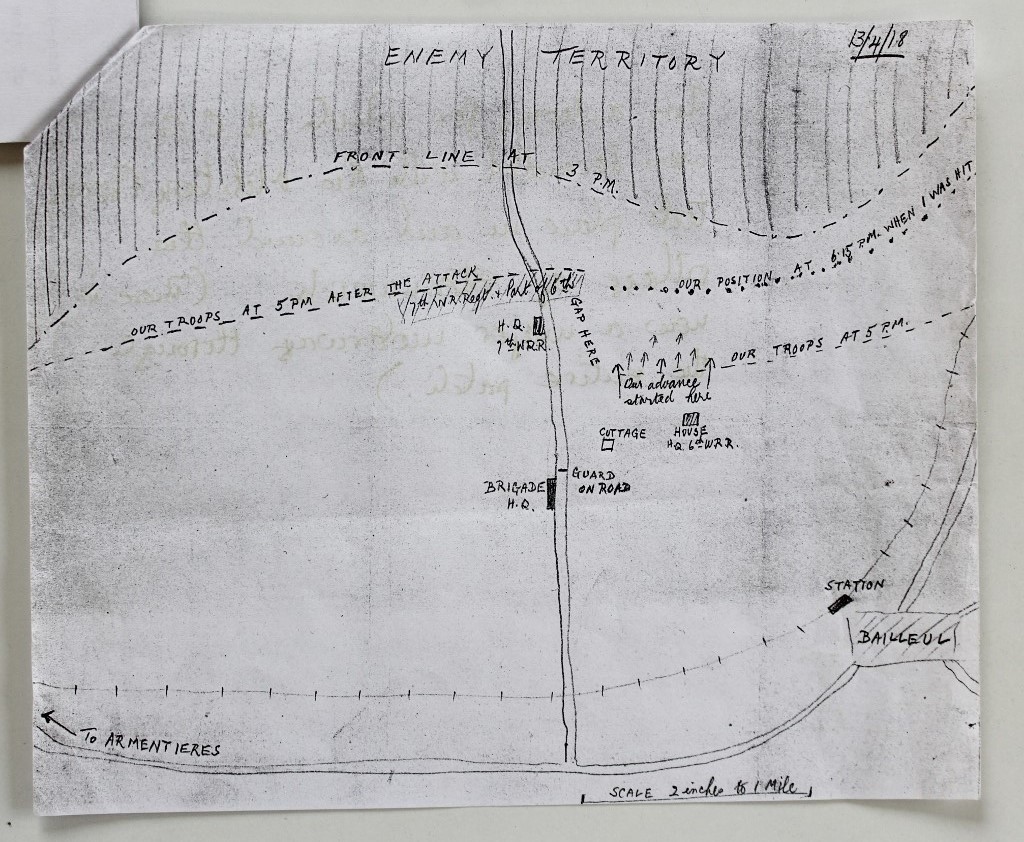 13/4/18
ENEMY TERRITORY
FRONT LINE AT 3 P.M.
OUR TROOPS AT 5 PM AFTER THE ATTACK
7th W.R. Regt. & Part of 6th
OUR POSITION AT 6.15 P.M. WHEN I WAS HIT
H.Q.
7th W.R.R.
GAP HERE
OUR TROOPS AT 5 P.M.
Our advance
started here
COTTAGE
HOUSE
H.Q. 6th W.R.R.
GUARD
ON ROAD
BRIGADE
H.Q.
STATION
BAILLEUL
To ARMENTIERES
SCALE 2 inches to 1 Mile